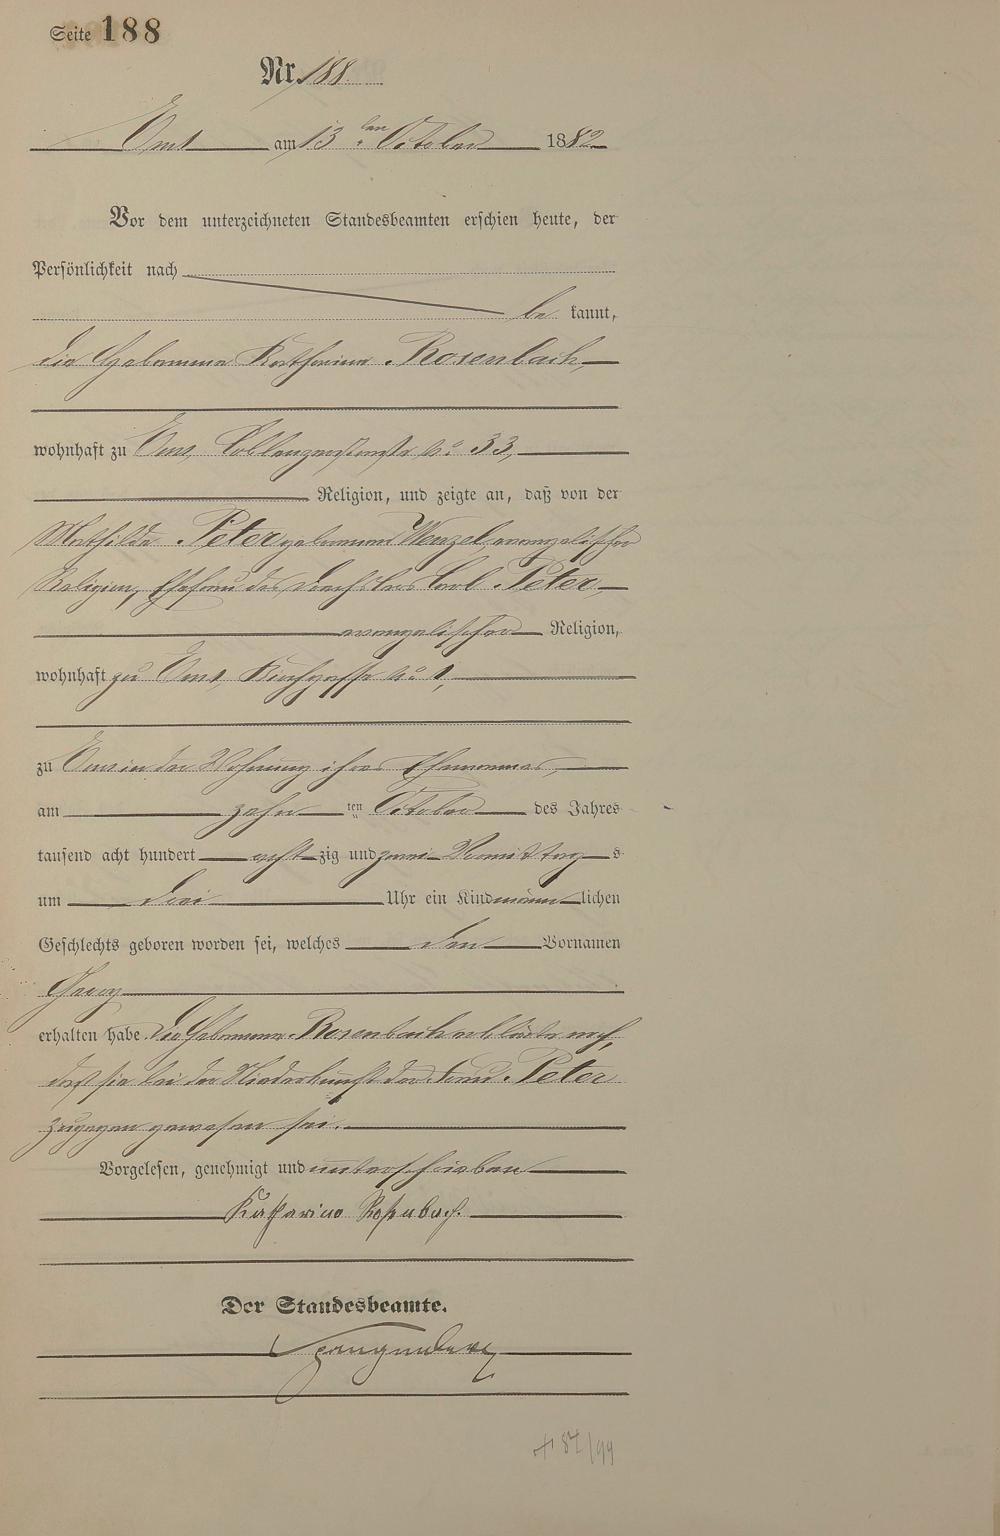 Seite 188
Nr. 188
Ems am 13ten October 1882
Vor dem unterzeichneten Standesbeamten erschien heute, der
Persönlichkeit nach
be kannt,
die Hebamme Katharina Rosenbach,
wohnhaft zu Ems, Coblenzerstraße No 33,
Religion, und zeigte an, daß von der
Mathilde Peter geborenen Wenzel, evangelischer
Religion, Ehefrau des Drechslers Carl Peter,
evangelischer Religion,
wohnhaft zu Ems, Kirchgasse No 1,
zu Ems in der Wohnung ihres Ehemannes,
am zehn ten October des Jahres
tausend acht hundert acht zig und zwei Vormittag s
um drei Uhr ein Kind männ lichen
Geschlechts geboren worden sei, welches den Vornamen
Georg
erhalten habe. Die Hebamme Rosenbach erklärte noch,
daß sie bei der Niederkunft der Frau Peter
zugegen gewesen sei.
Vorgelesen, genehmigt und unterschrieben
Katharina Rosenbach.
Der Standesbeamte.
Spangenberg
+ 87/99